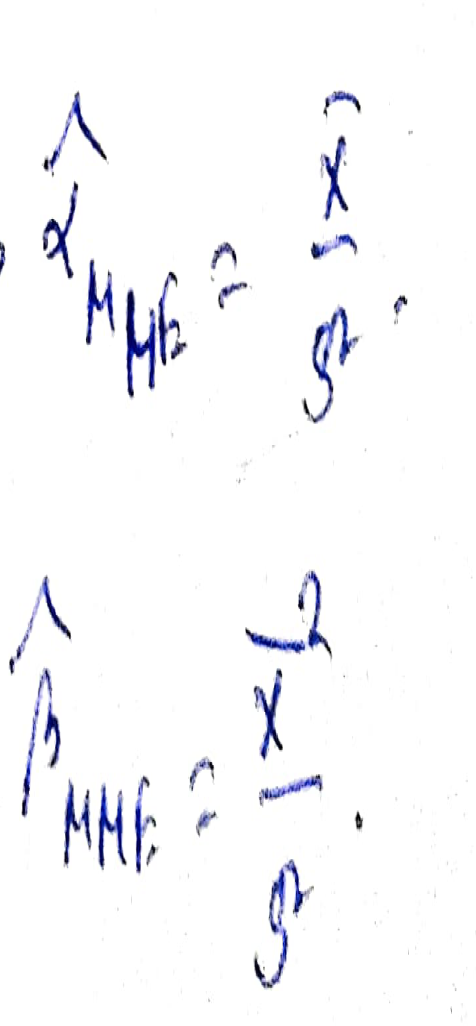 α̂_MME = x̄ / S².
β̂_MME = x̄² / S².